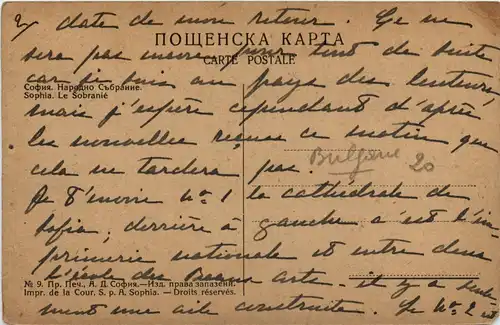 date de mon retour. Ce ne
ПОЩЕНСКА КАРТА
sera pas encore pour tout de suite
CARTE POSTALE
car je suis au pays des lenteurs,
София. Народно Събрание.
Sophia. Le Sobranié
mais j'espère cependant d'après
les nouvelles reçues ce matin que
cela ne tardera pas.
Bulgarie 20
Je t'envoie No 1 la cathédrale de
Sofia; derrière à gauche c'est l'im-
primerie nationale et entre deux
l'école des Beaux arts - il y a seule
№ 9. Пр. Печ., А. Д. София.—Изд. права запазени.
Impr. de la Cour, S. p. A. Sophia. — Droits réservés.
ment une aile construite. Le No 2 est